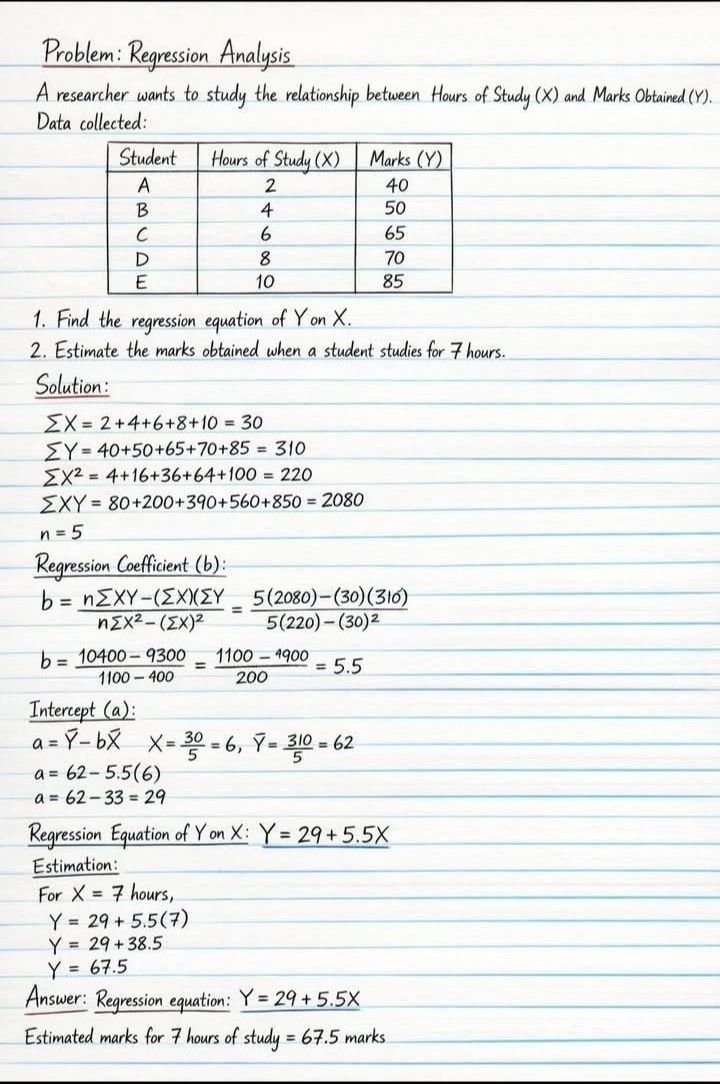 Problem: Regression Analysis
A researcher wants to study the relationship between Hours of Study (X) and Marks Obtained (Y).
Data collected:
Student Hours of Study (X) Marks (Y)
A 2 40
B 4 50
C 6 65
D 8 70
E 10 85
1. Find the regression equation of Y on X.
2. Estimate the marks obtained when a student studies for 7 hours.
Solution:
ΣX = 2+4+6+8+10 = 30
ΣY = 40+50+65+70+85 = 310
ΣX² = 4+16+36+64+100 = 220
ΣXY = 80+200+390+560+850 = 2080
n = 5
Regression Coefficient (b):
b = nΣXY-(ΣX)(ΣY / nΣX²-(ΣX)² = 5(2080)-(30)(316) / 5(220)-(30)²
b = 10400-9300 / 1100-400 = 1100-4900 / 200 = 5.5
Intercept (a):
a = Ȳ-bX̄ X = 30/5 = 6, Ȳ = 310/5 = 62
a = 62-5.5(6)
a = 62-33 = 29
Regression Equation of Y on X: Y = 29+5.5X
Estimation:
For X = 7 hours,
Y = 29 + 5.5(7)
Y = 29+38.5
Y = 67.5
Answer: Regression equation: Y = 29 + 5.5X
Estimated marks for 7 hours of study = 67.5 marks